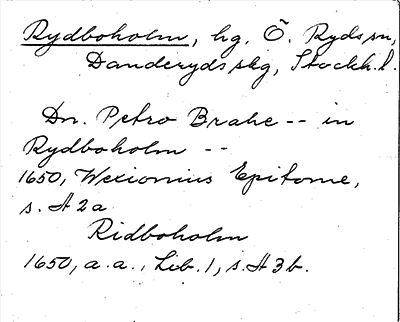 Rydboholm, hg, Ö. Ryds sn,
Danderyds skg, Stockh.l.
Dn. Petro Brahe -- in
Rydboholm --
1650, Wexionius Epitome,
s. A 2 a
Ridboholm
1650, a.a., Lib. 1, s. A 3 b.